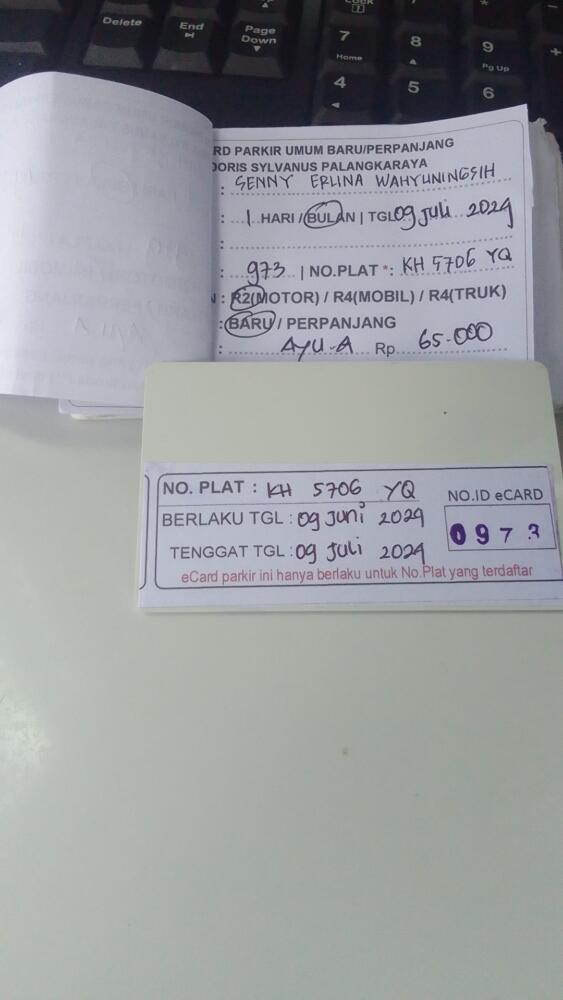 Delete
End
Page Down
7 Home
8
9 Pg Up
4
5
6
RD PARKIR UMUM BARU/PERPANJANG
DORIS SYLVANUS PALANGKARAYA
: SENNY ERLINA WAHYUNINGSIH
: 1 HARI / BULAN | TGL 09 Juli 2024
:
: 973 | NO.PLAT *: KH 5706 YQ
: R2(MOTOR) / R4(MOBIL) / R4(TRUK)
: BARU / PERPANJANG
: AYU-A Rp. 65.000
NO. PLAT : KH 5706 YQ
NO.ID eCARD
BERLAKU TGL : 09 Juni 2024
0973
TENGGAT TGL : 09 Juli 2024
eCard parkir ini hanya berlaku untuk No.Plat yang terdaftar